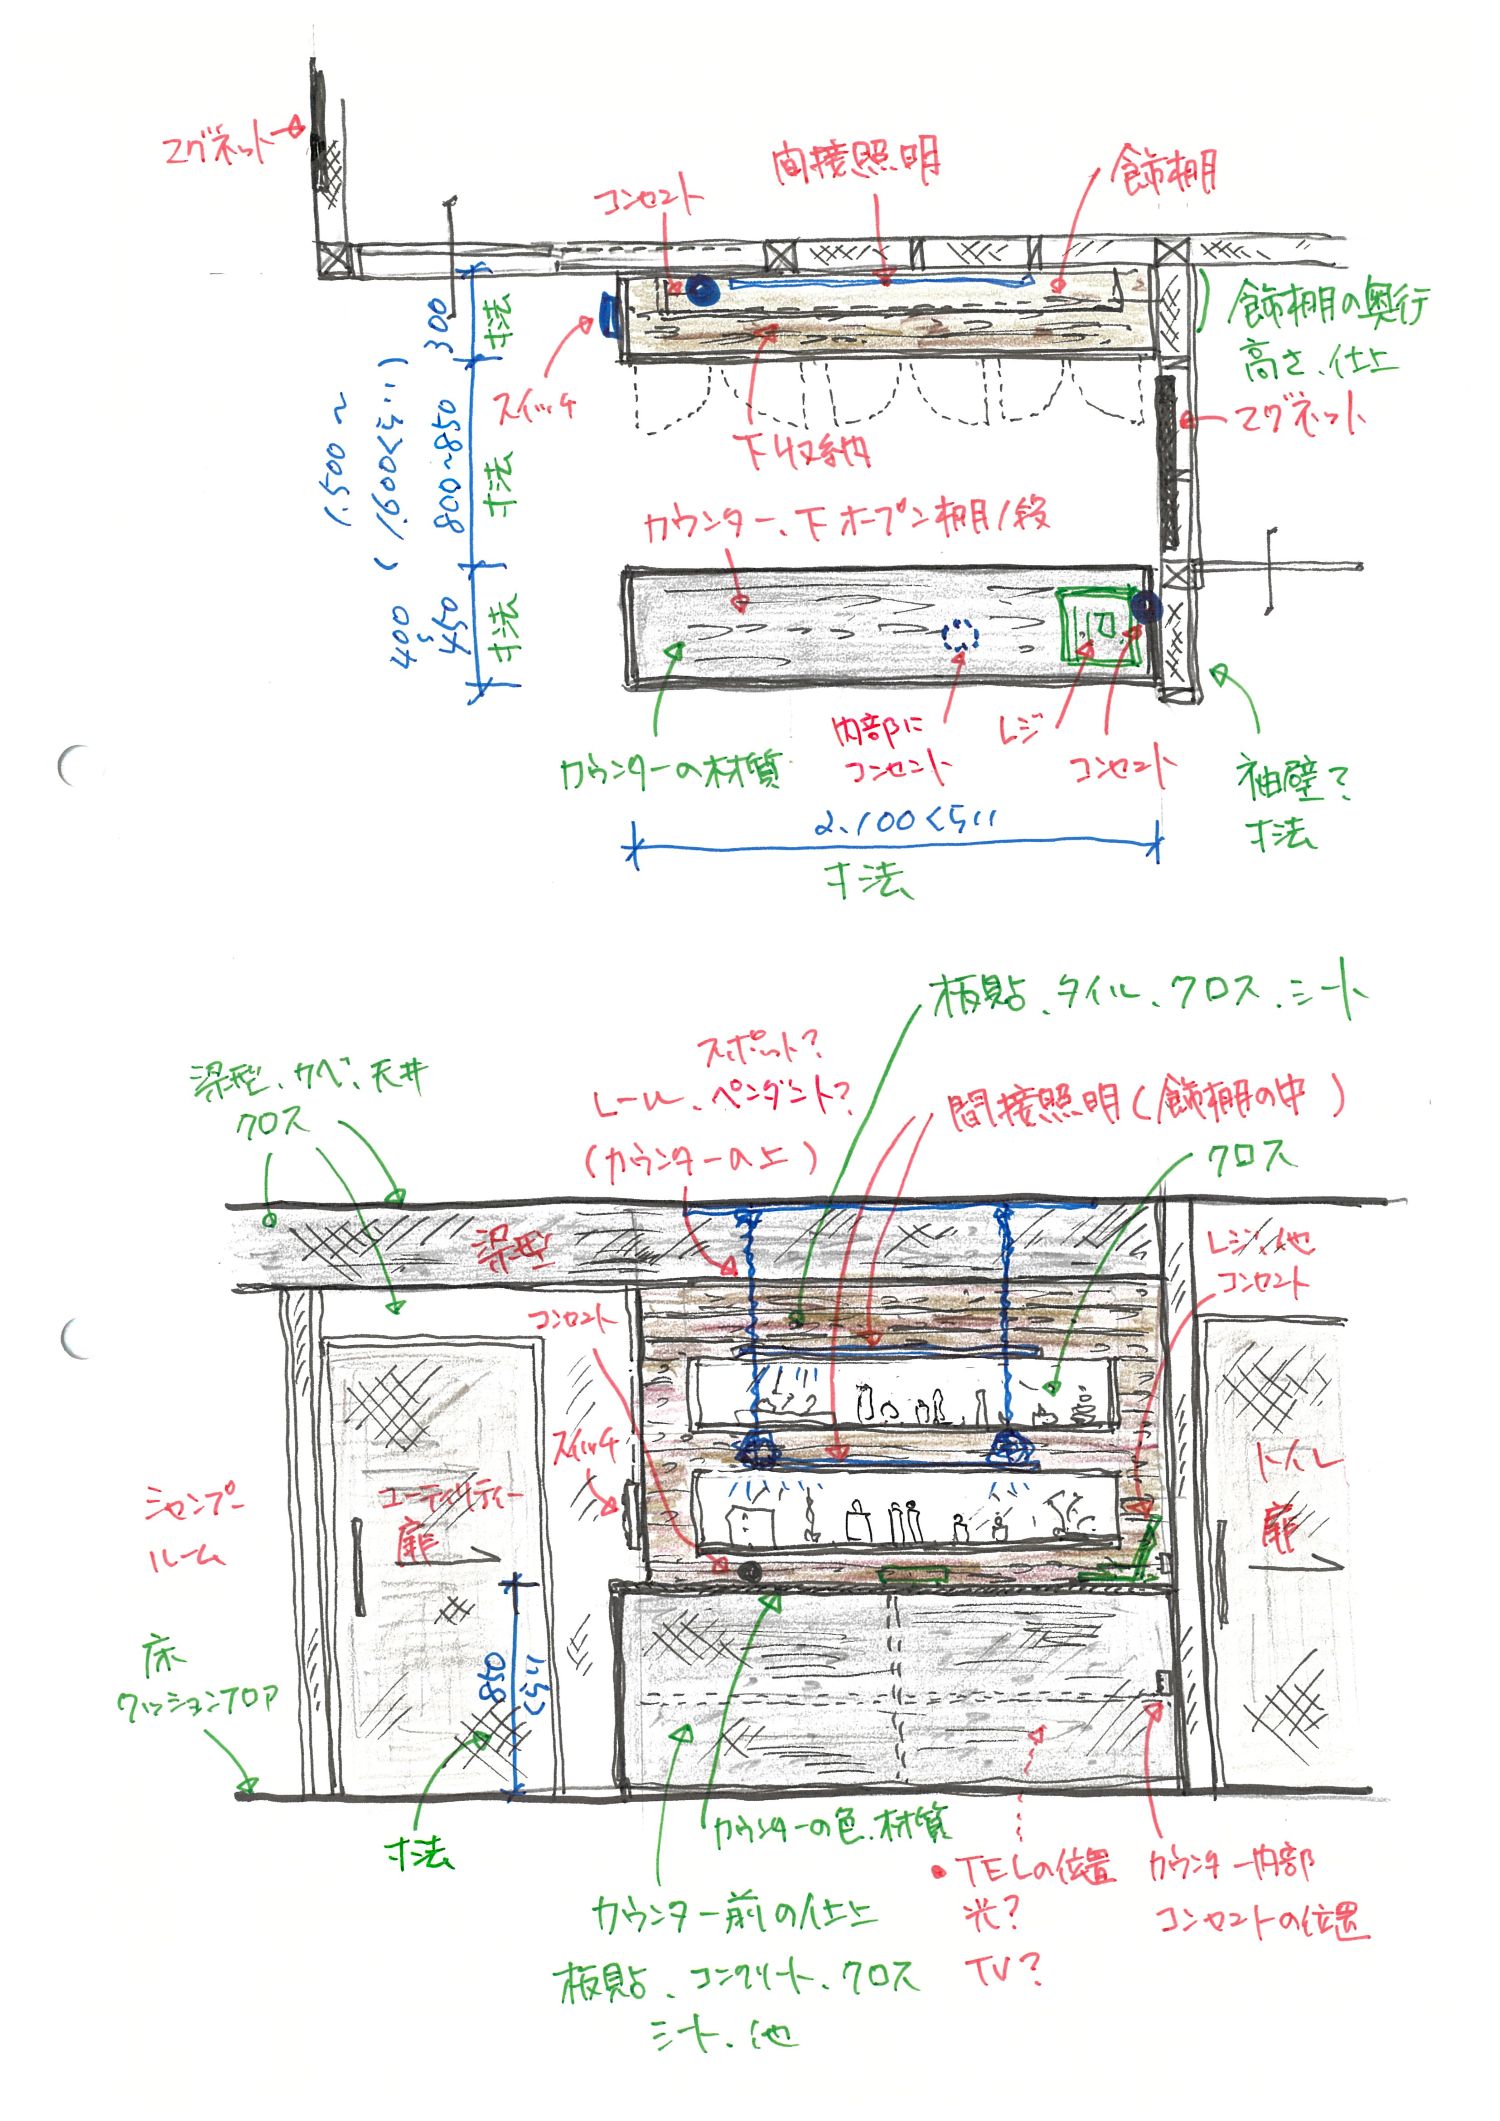 マグネット
コンセント
間接照明
飾棚
飾棚の奥行
高さ、仕上
マグネット
スイッチ
下収納
300
寸法
1.500～
(1.600くらい)
800~850
寸法
400
450
寸法
カウンター、下オープン棚1段
カウンターの材質
内部に
コンセント
レジ
コンセント
袖壁?
寸法
2.100くらい
寸法
板貼、タイル、クロス、シート
スポット?
レール、ペンダント?
(カウンターの上)
梁型、カベ、天井
クロス
間接照明(飾棚の中)
クロス
梁型
レジ、他
コンセント
コンセント
スイッチ
シャンプー
ルーム
ユーティリティー
扉
トイレ
扉
床
クッションフロア
850
くらい
寸法
カウンターの色、材質
カウンター前の仕上
板貼、コンクリート、クロス
シート、他
・TELの位置
光?
TV?
カウンター内部
コンセントの位置